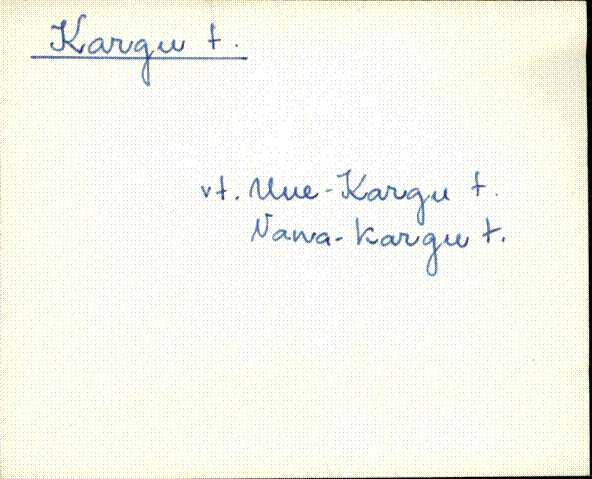 Kargu t.
vt. Uue-Kargu t.
Vana-Kargu t.